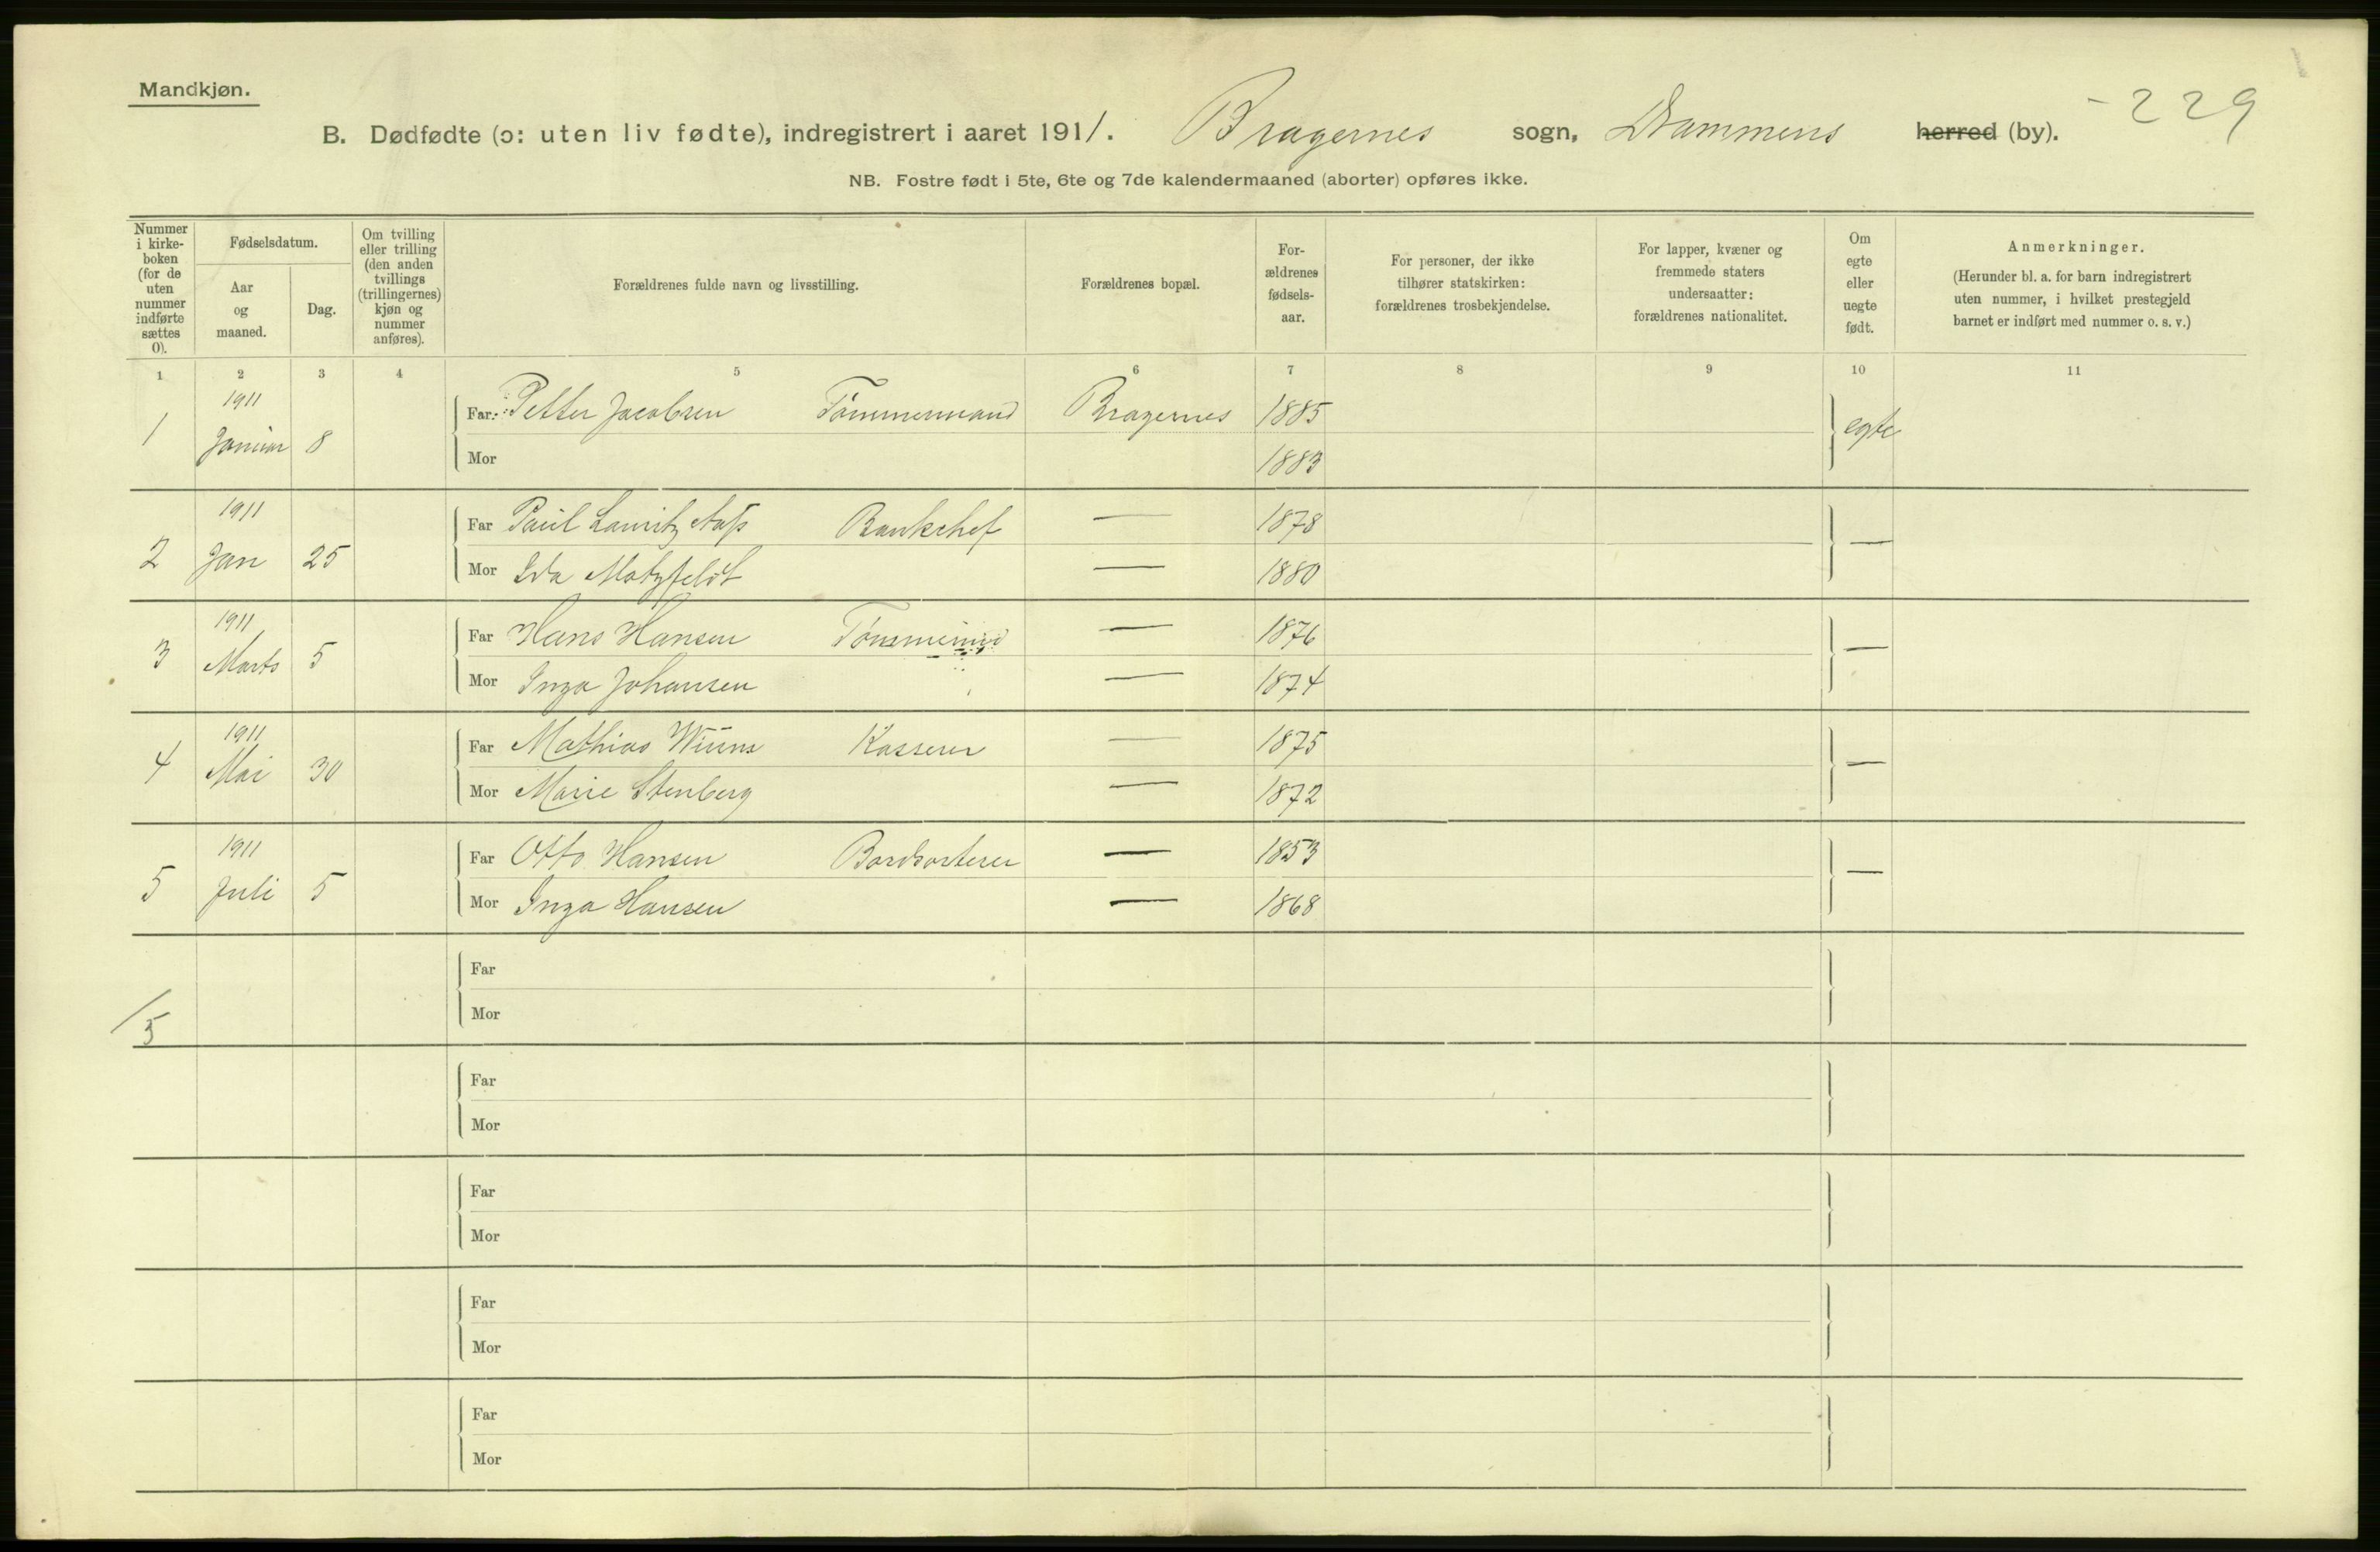 Mandkjøn.
- 229
B. Dødfødte (ɔ: uten liv fødte), indregistrert i aaret 1911. Bragernes sogn, Drammens herred (by).
NB. Fostre født i 5te, 6te og 7de kalendermaaned (aborter) opføres ikke.
Nummer i kirke-boken (for de uten nummer indførte sættes 0).
Fødselsdatum.
Aar og maaned.
Dag.
Om tvilling eller trilling (den anden tvillings (trillingernes) kjøn og nummer anføres).
Forældrenes fulde navn og livsstilling.
Forældrenes bopæl.
For-ældrenes fødsels-aar.
For personer, der ikke tilhører statskirken: forældrenes trosbekjendelse.
For lapper, kvæner og fremmede staters undersaatter: forældrenes nationalitet.
Om egte eller uegte født.
Anmerkninger.
(Herunder bl. a. for barn indregistrert uten nummer, i hvilket prestegjeld barnet er indført med nummer o. s. v.)
1 2 3 4 5 6 7 8 9 10 11
1 1911 Januar 8 Far Petter Jacobsen Tømmermand Bragernes 1885 egte
Mor 1883
2 1911 Jan 25 Far Paul Lauritz Bankchef — 1878 —
Mor Ida Motzfeldt — 1880
3 1911 Marts 5 Far Hans Hansen — 1876 —
Mor Inga Johansen — 1874
4 1911 Mai 30 Far Mathias Kasserer — 1875 —
Mor Marie Stenberg — 1872
5 1911 Juli 5 Far Otto Hansen Bordsorterer — 1853 —
Mor Inga Hansen — 1868
Far
Mor
/5
Far
Mor
Far
Mor
Far
Mor
Far
Mor